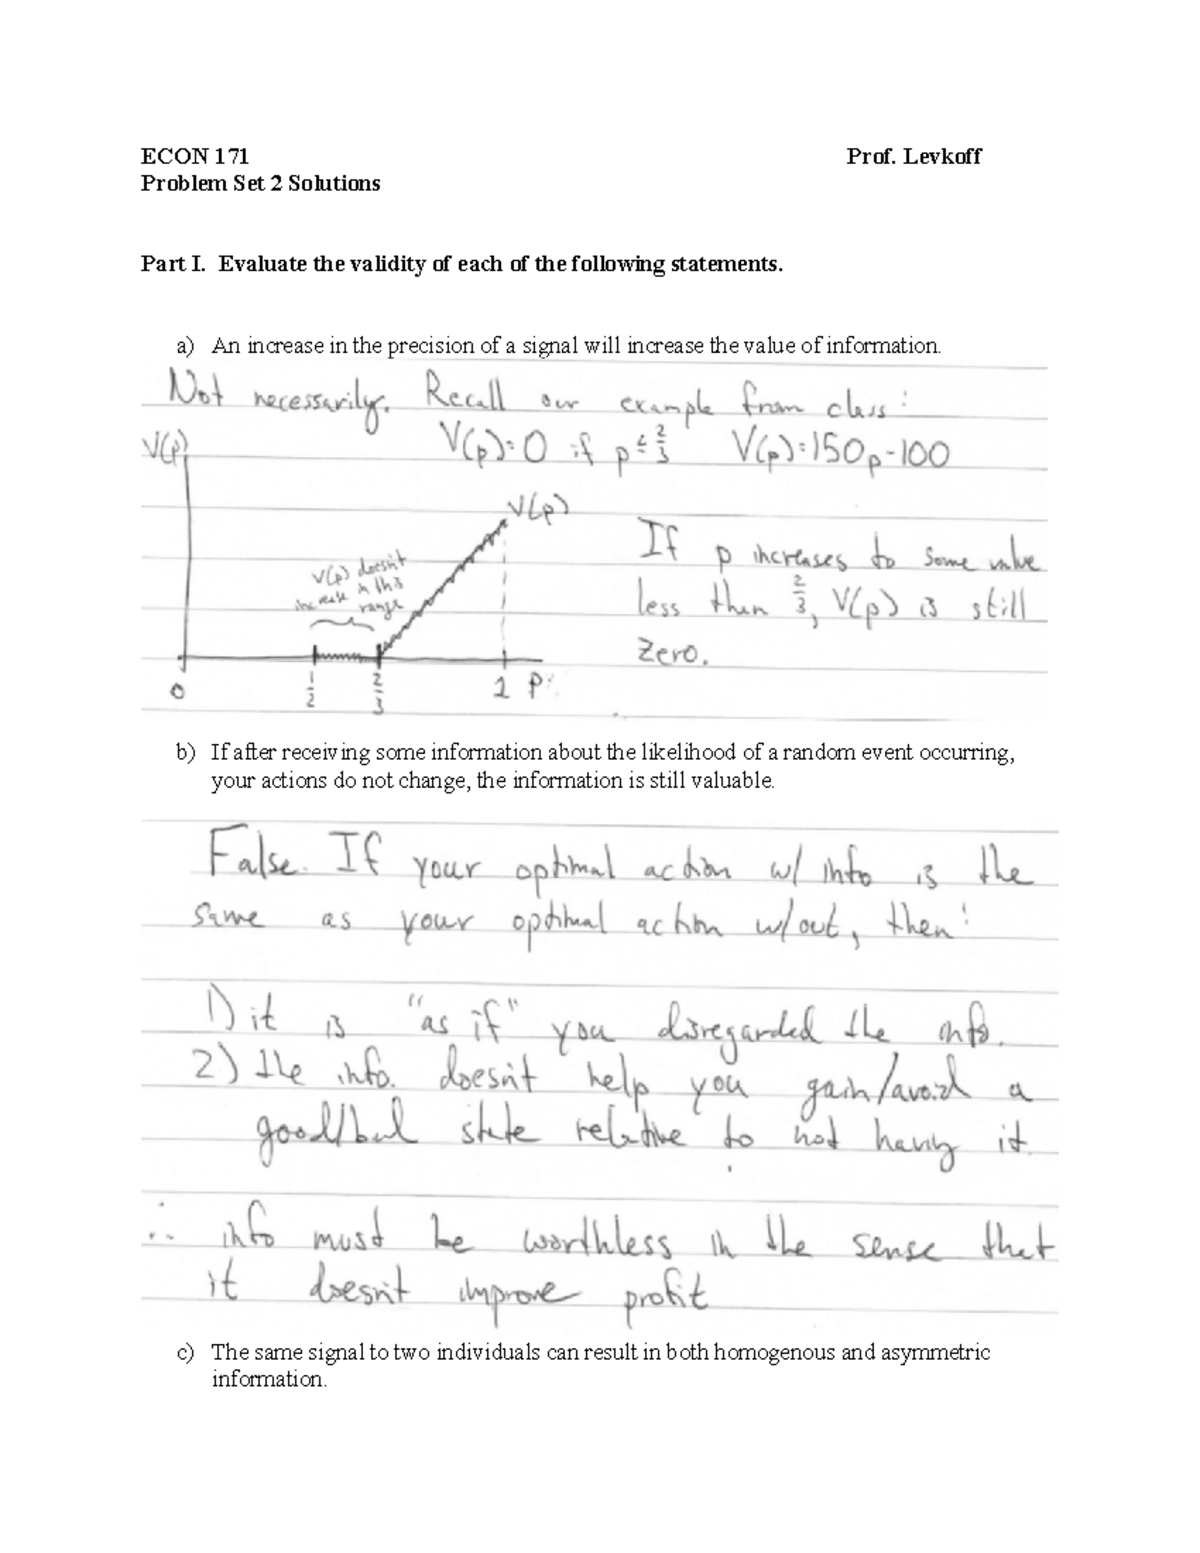 ECON 171 Prof. Levkoff
Problem Set 2 Solutions
Part I. Evaluate the validity of each of the following statements.
a) An increase in the precision of a signal will increase the value of information.
Not necessarily. Recall our example from class:
V(p)=0 if p≤2/3 V(p)=150p-100
V(p)
V(p)
V(p) doesn't
increase in this
range
If p increases to some value
less than 2/3, V(p) is still
zero.
0 1/2 2/3 1 P
b) If after receiving some information about the likelihood of a random event occurring,
your actions do not change, the information is still valuable.
False. If your optimal action w/ info is the
same as your optimal action w/out, then:
1) it is "as if" you disregarded the info.
2) the info. doesn't help you gain/avoid a
good/bad state relative to not having it.
∴ info must be worthless in the sense that
it doesn't improve profit
c) The same signal to two individuals can result in both homogenous and asymmetric
information.